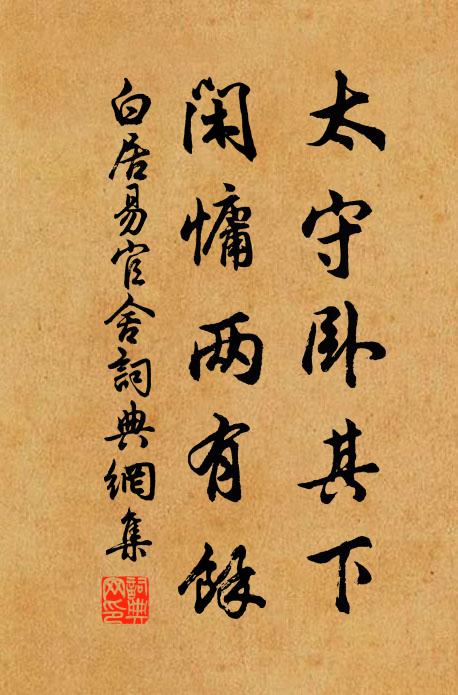 太守卧其下
闲慵两有餘
白居易官舍詞典網集
詞典网印